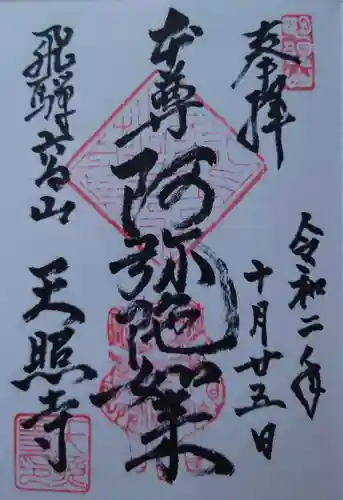 奉拝
令和二年
十月廿五日
本尊 阿弥陀如来
飛騨高山
天照寺